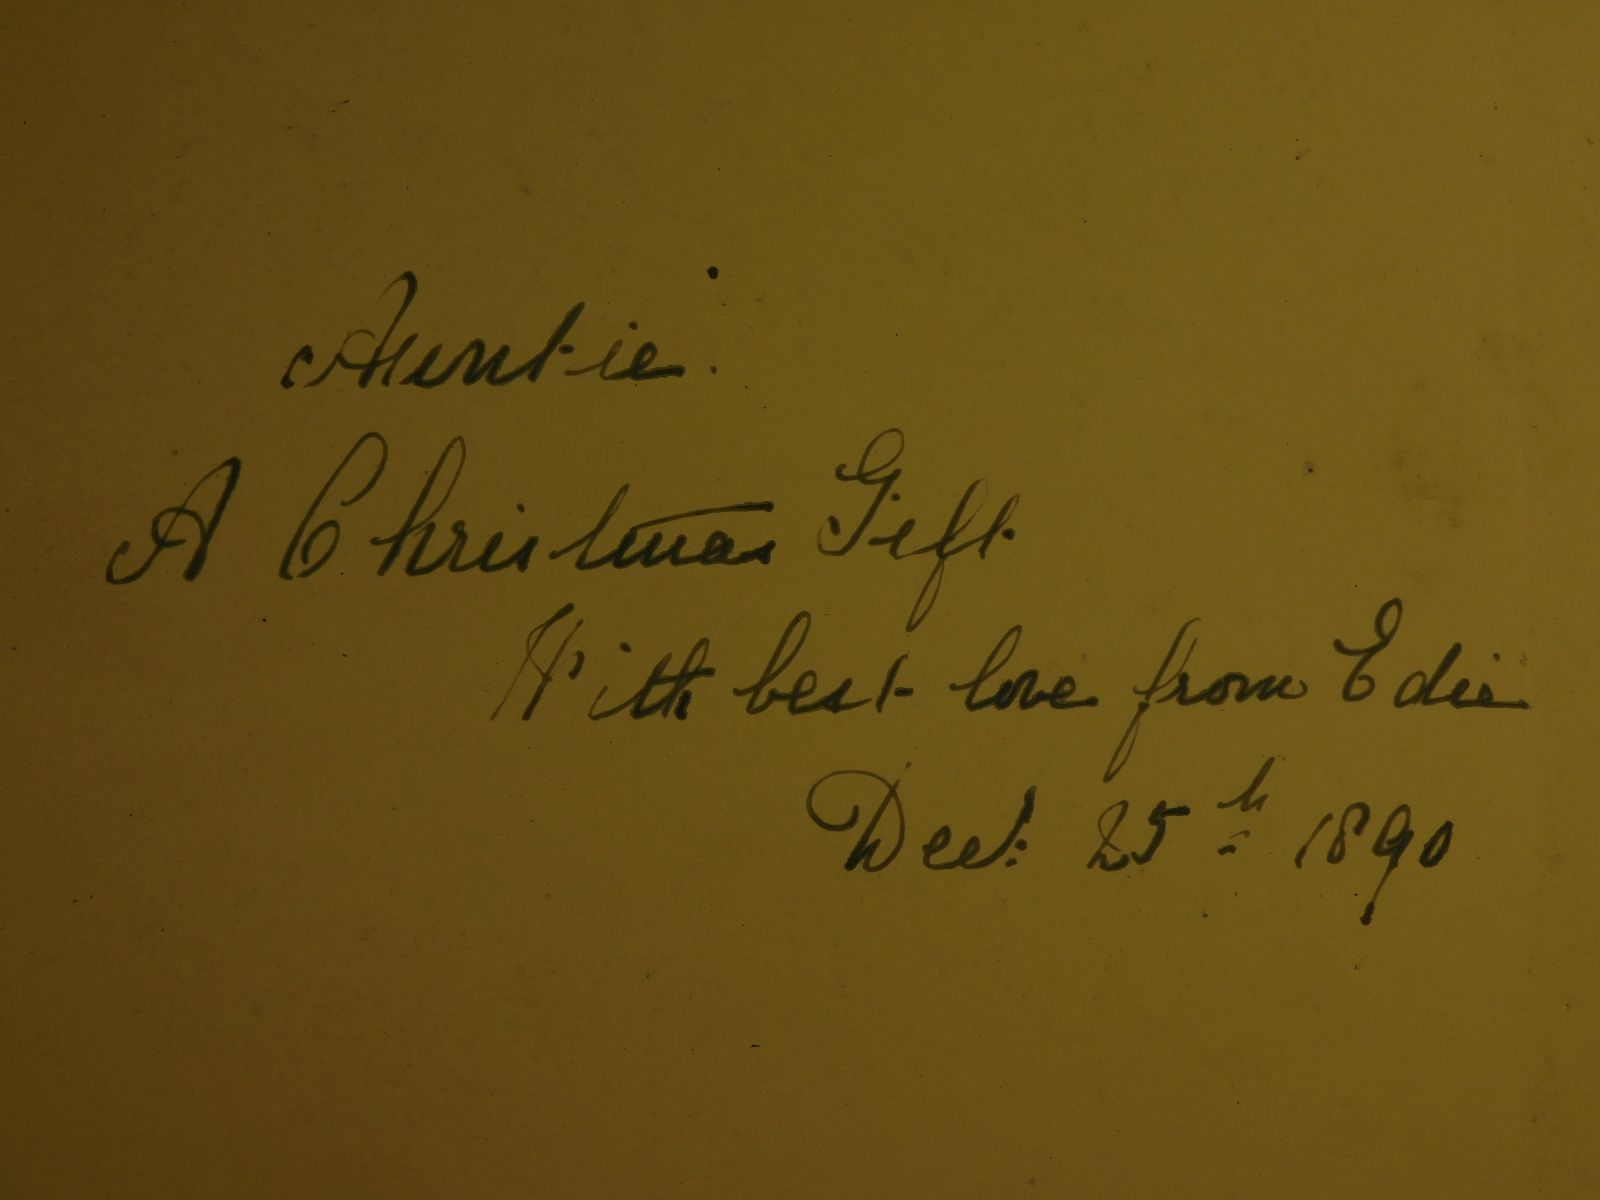 Auntie.
A Christmas Gift
With best love from Edie
Dec: 25th 1890